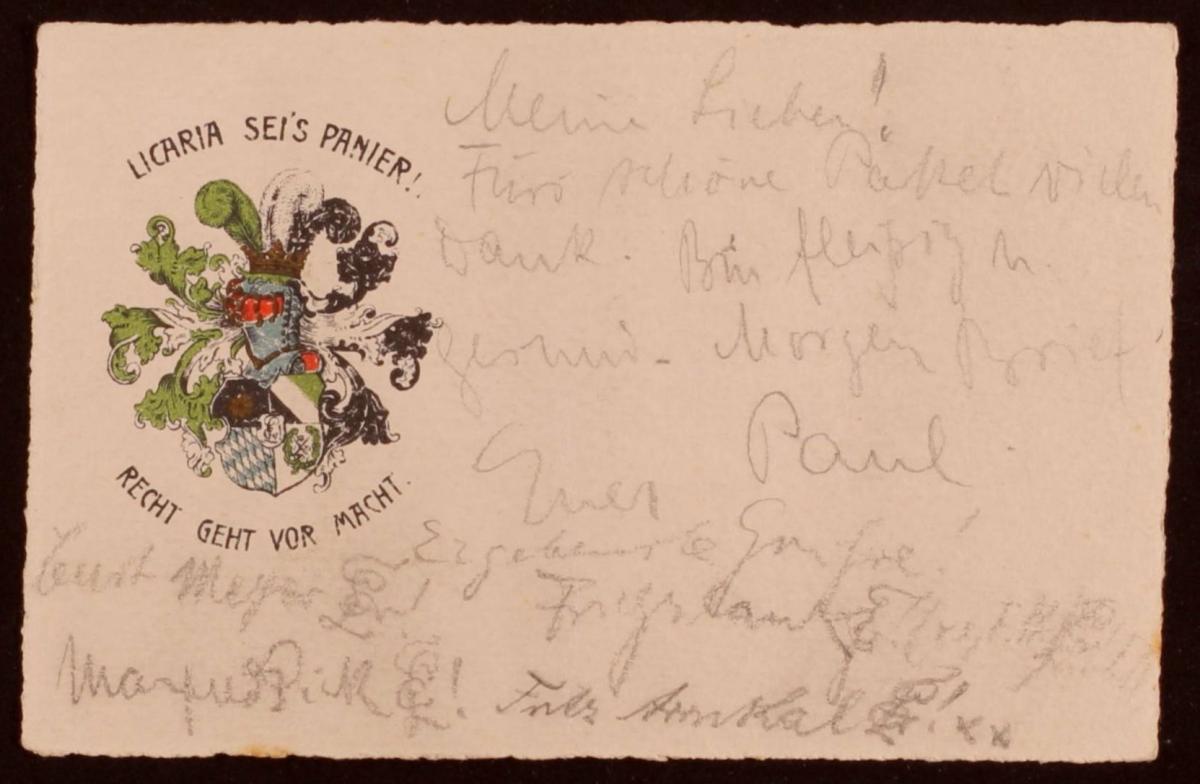 LICARIA SEI'S PANIER!
RECHT GEHT VOR MACHT.
Meine Lieben!
Fürs schöne Packet vielen
Dank. Bin fleißig u.
gesund. Morgen Brief!
Euer Paul.
Ergebenste Grüße!
Curt Meyer
Fritz
Manfred Pick
Fritz xx